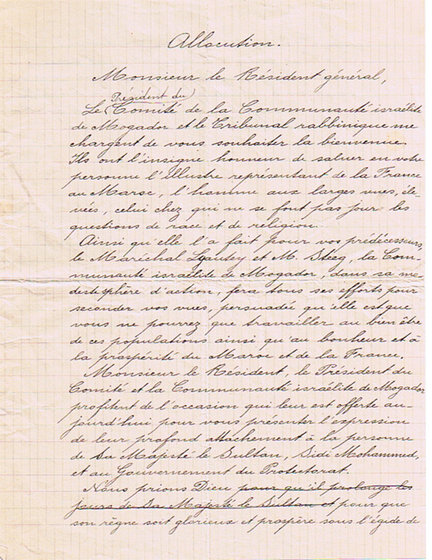 Allocution.
Monsieur le Résident général,
Président du
Le (Comité de la Communauté israélite
de Mogador et le Tribunal rabbinique me
chargent de vous souhaiter la bienvenue.
Ils ont l'insigne honneur de saluer en votre
personne l'illustre représentant de la France
au Maroc, l'homme aux larges vues, éle-
vées, celui chez qui ne se font pas jour les
questions de race et de religion.
Ainsi qu'elle l'a fait pour vos prédécesseurs,
le Maréchal Lyautey et M. Steeg, la Com-
munauté israélite de Mogador, dans sa mo-
deste sphère d'action, fera tous ses efforts pour
seconder vos vues, persuadée qu'elle est que
vous ne pourrez que travailler au bien être
de ces populations ainsi qu'au bonheur et à
la prospérité du Maroc et de la France.
Monsieur le Résident, le Président du
Comité et la Communauté israélite de Mogador
profitent de l'occasion qui leur est offerte au-
jourd'hui pour vous présenter l'expression
de leur profond attachement à la personne
de Sa Majesté le Sultan, Sidi Mohammed,
et au Gouvernement du Protectorat.
Nous prions Dieu pour qu'il prolonge les
jours de Sa Majesté le Sultan et pour que
son règne soit glorieux et prospère sous l'égide de